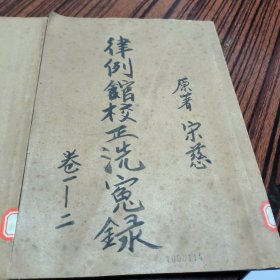 原著 宋慈
律例館校正洗冤錄
卷一—二